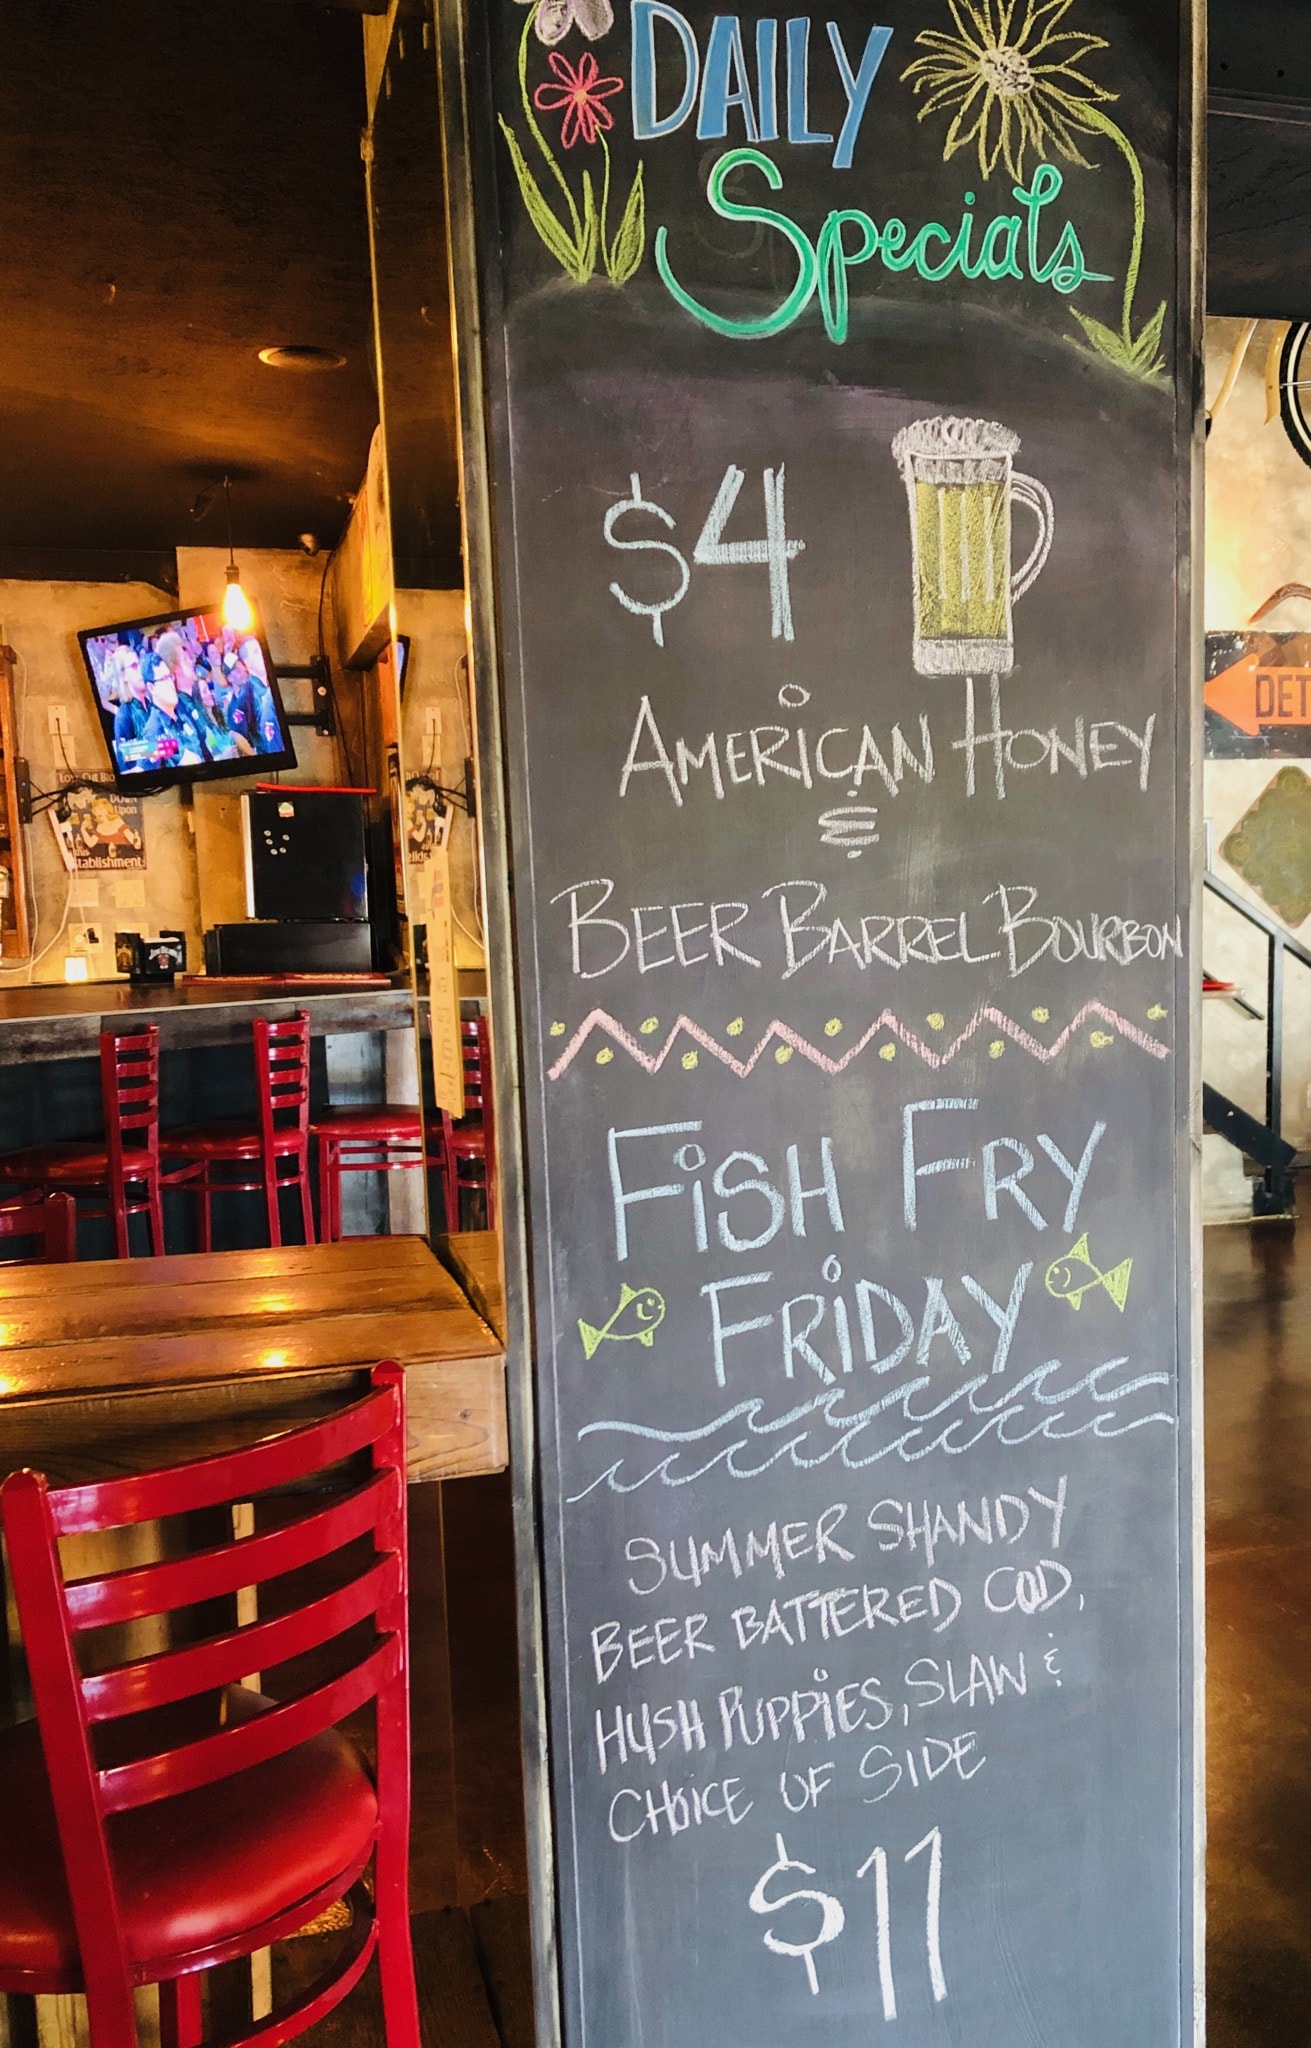 DAILY
Specials
$4
AMERICAN HONEY
&
BEER BARREL BOURBON
FISH FRY
FRIDAY
SUMMER SHANDY
BEER BATTERED COD,
HUSH PUPPIES, SLAW &
CHOICE OF SIDE
$11
DET
DOWN
Upon
tablishment